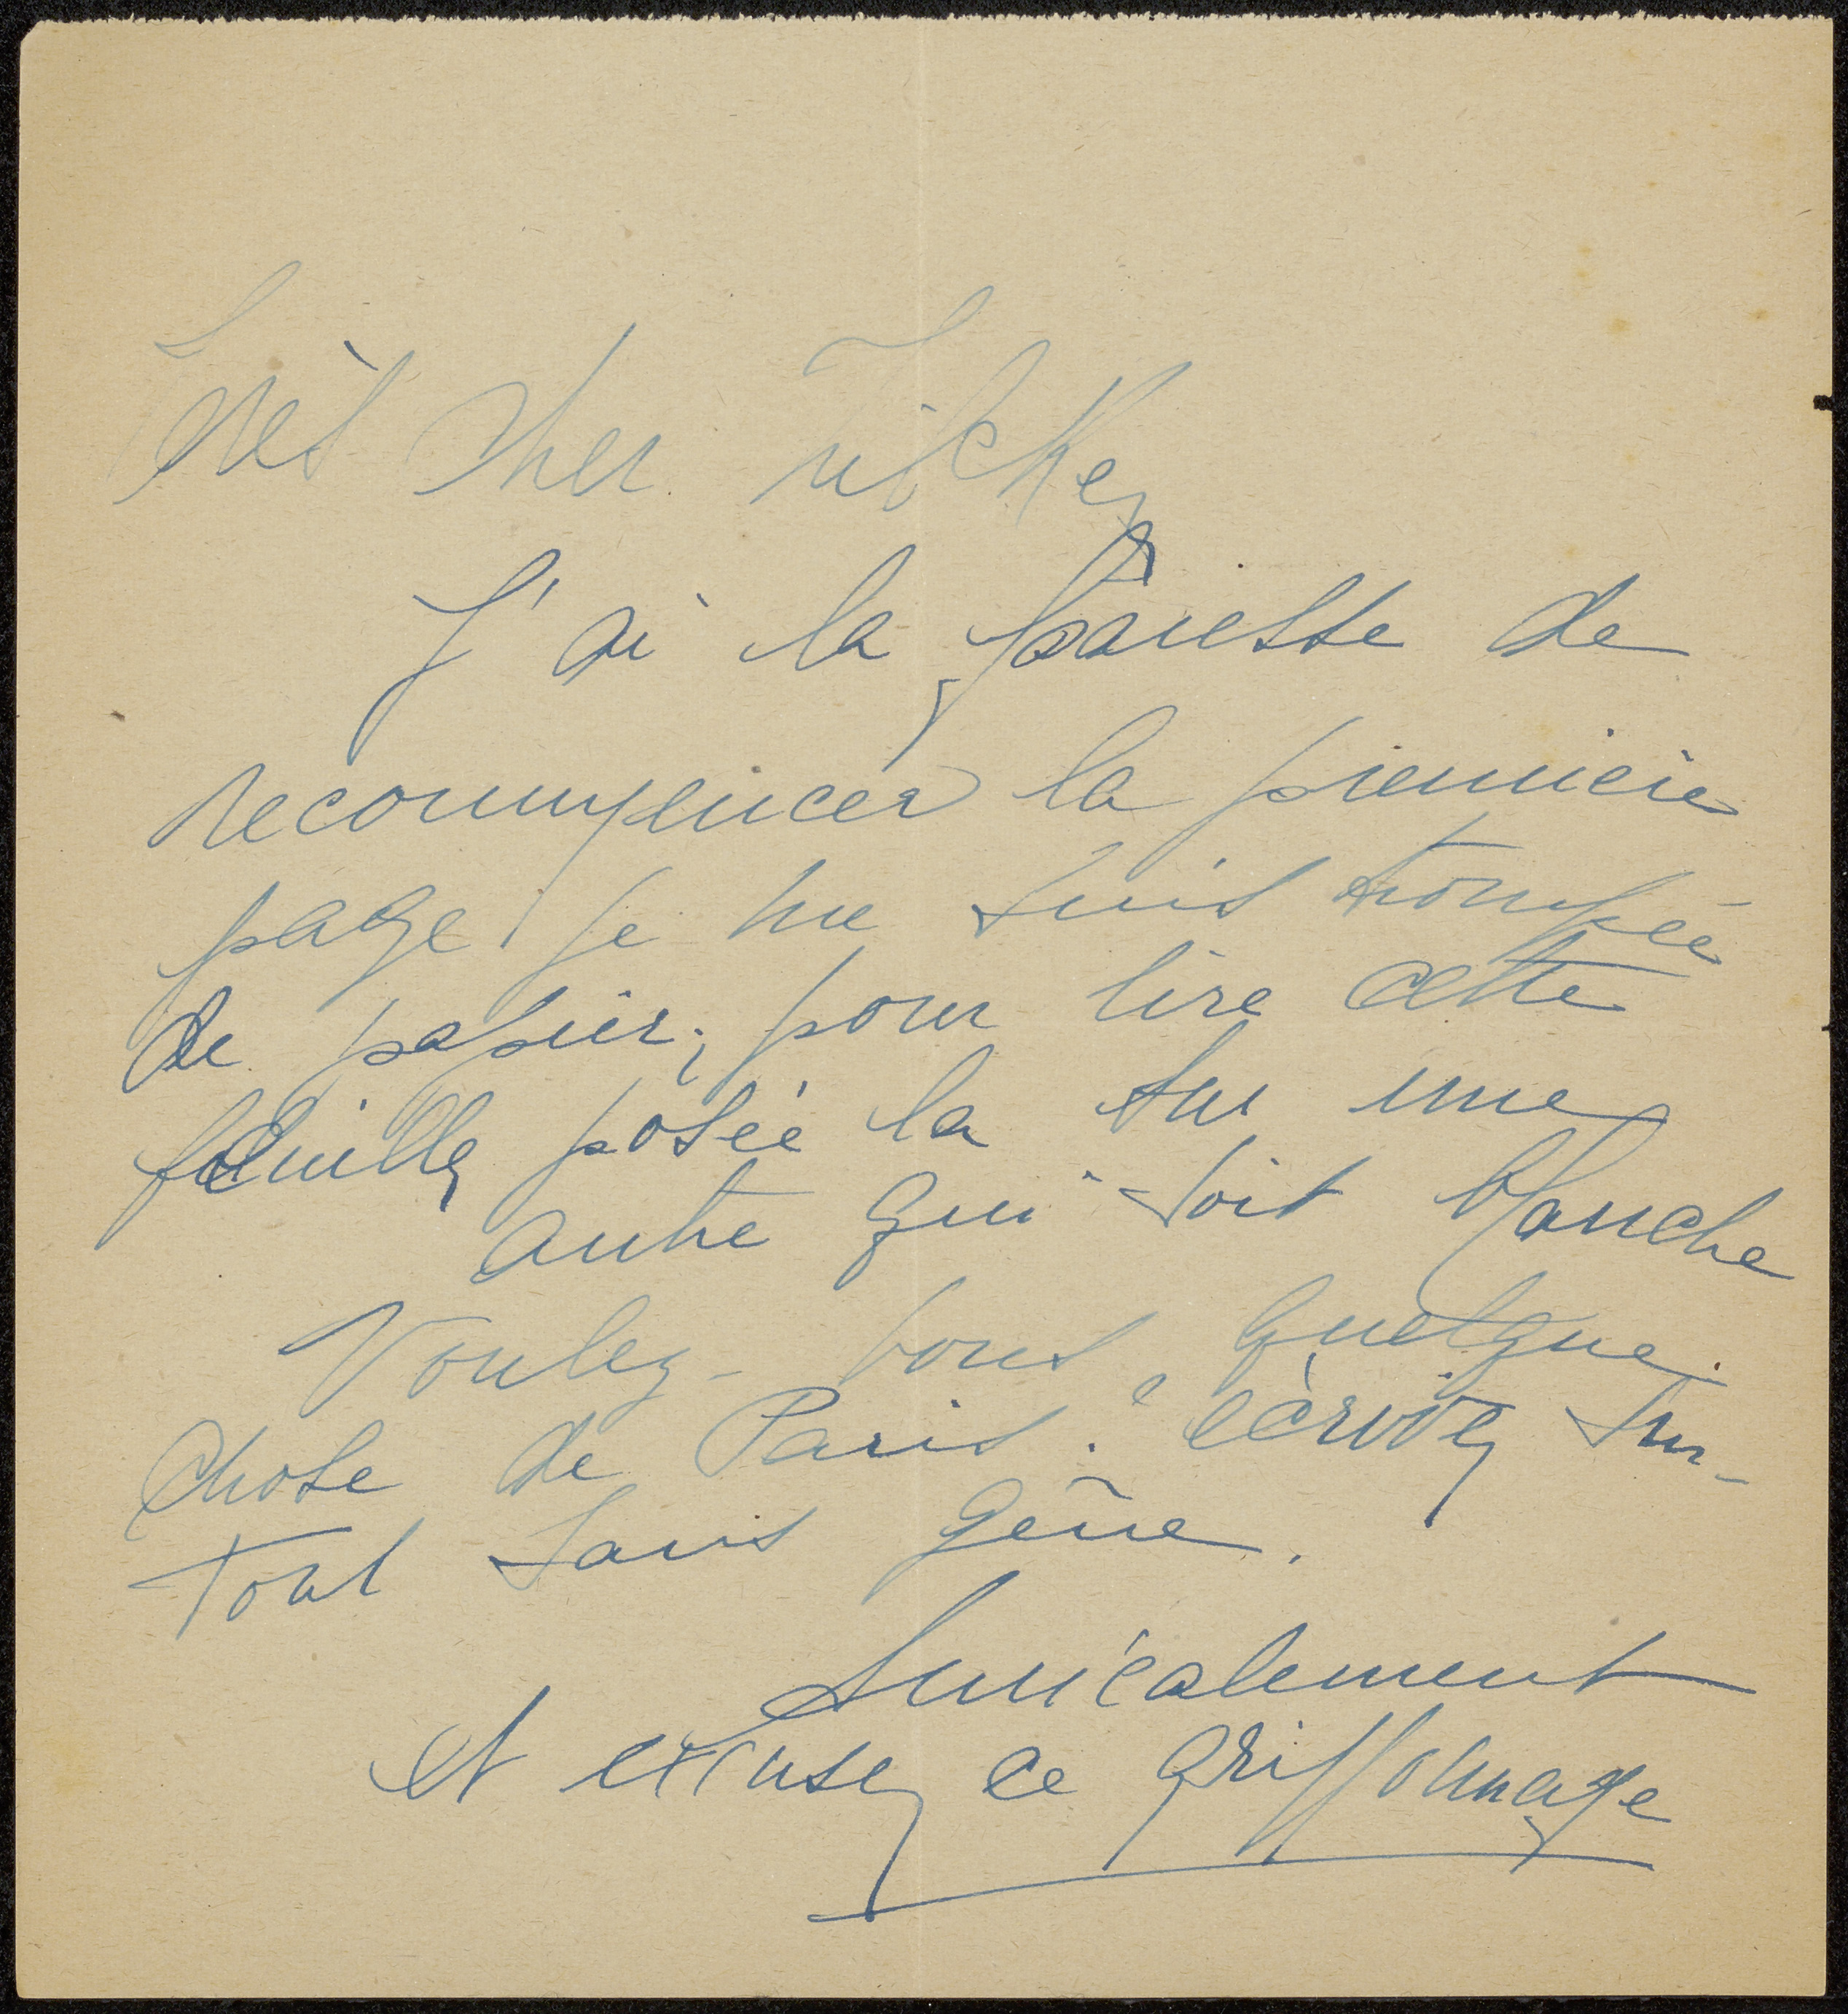 Très cher
J'ai la paresse de
recommencer la première
page, je me suis trompée
de papier; pour lire cette
feuille posée la sur une
autre qui soit blanche
Voulez-vous quelque
chose de Paris. écrivez sur-
tout sans gêne.
Amicalement
et excusez ce griffonnage